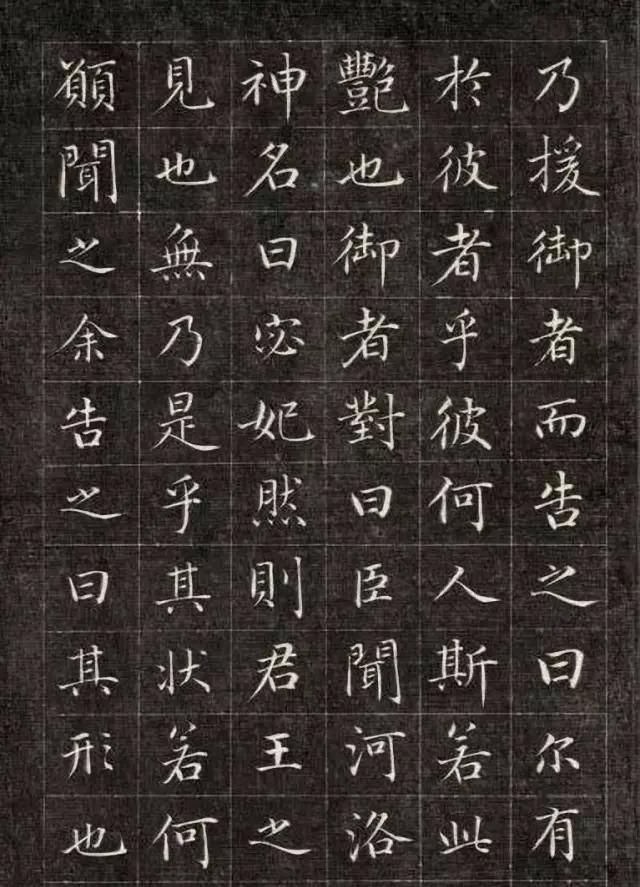 乃援御者而告之曰尔有
於彼者乎彼何人斯若此
艷也御者對曰臣聞河洛
神名曰宓妃然則君王之
見也無乃是乎其状若何
願聞之余告之曰其形也